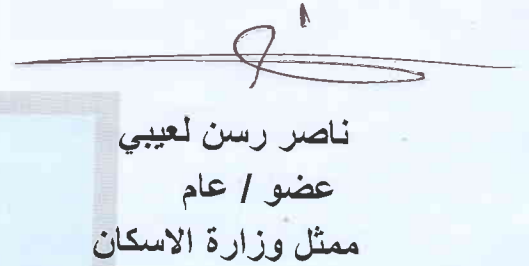 ناصر رسن لعيبي
عضو / عام
ممثل وزارة الاسكان